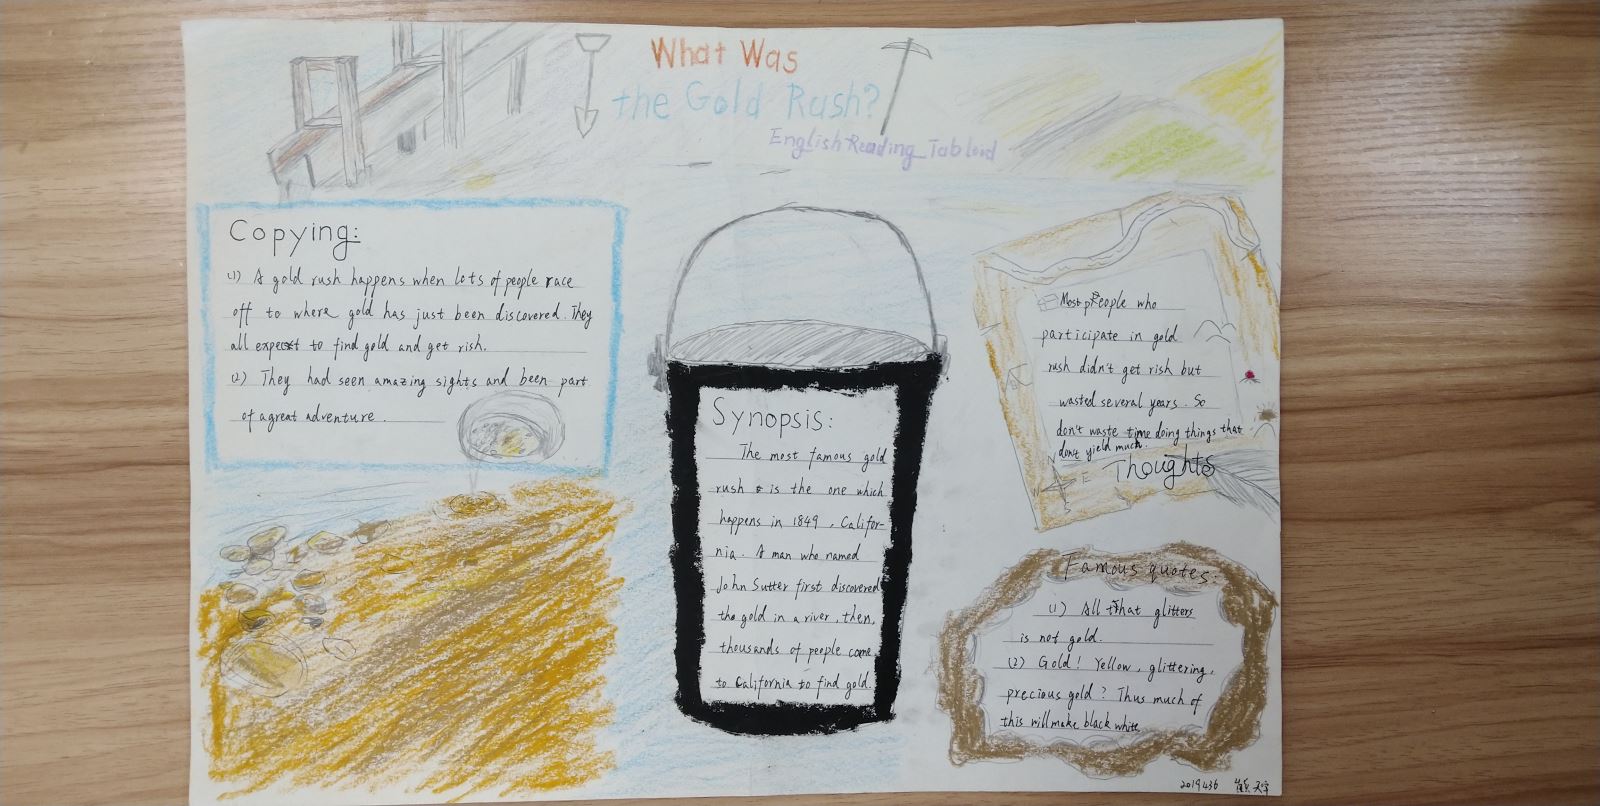 What Was
the Gold Rush?
English Reading Tabloid
Copying:
(1) A gold rush happens when lots of people race
off to where gold has just been discovered. They
all expect to find gold and get rish.
(2) They had seen amazing sights and been part
of a great adventure.
Synopsis:
The most famous gold
rush is the one which
happens in 1849, Califor-
nia. A man who named
John Sutter first discovered
the gold in a river, then,
thousands of people come
to California to find gold.
Most people who
participate in gold
rush didn't get rish but
wasted several years. So
don't waste time doing things that
don't yield much.
Thoughts
N
E
S
Famous quotes:
(1) All that glitters
is not gold.
(2) Gold! Yellow, glittering,
precious gold? Thus much of
this will make black white
2019436